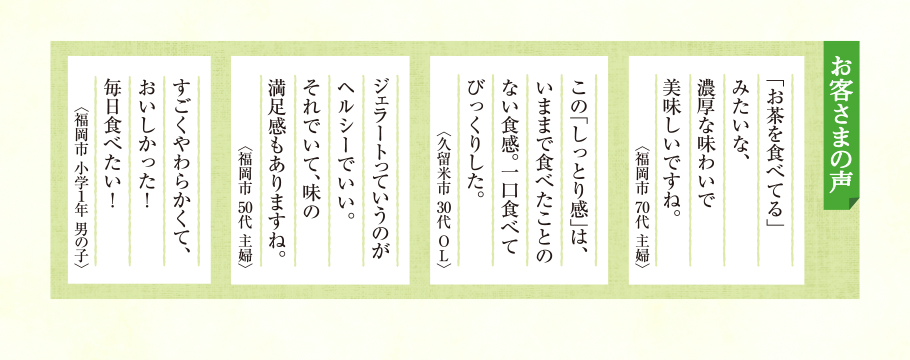 お客さまの声
「お茶を食べてる」
みたいな、
濃厚な味わいで
美味しいですね。
〈福岡市 70代 主婦〉
この「しっとり感」は、
いままで食べたことの
ない食感。一口食べて
びっくりした。
〈久留米市 30代 OL〉
ジェラートっていうのが
ヘルシーでいい。
それでいて、味の
満足感もありますね。
〈福岡市 50代 主婦〉
すごくやわらかくて、
おいしかった！
毎日食べたい！
〈福岡市 小学1年 男の子〉